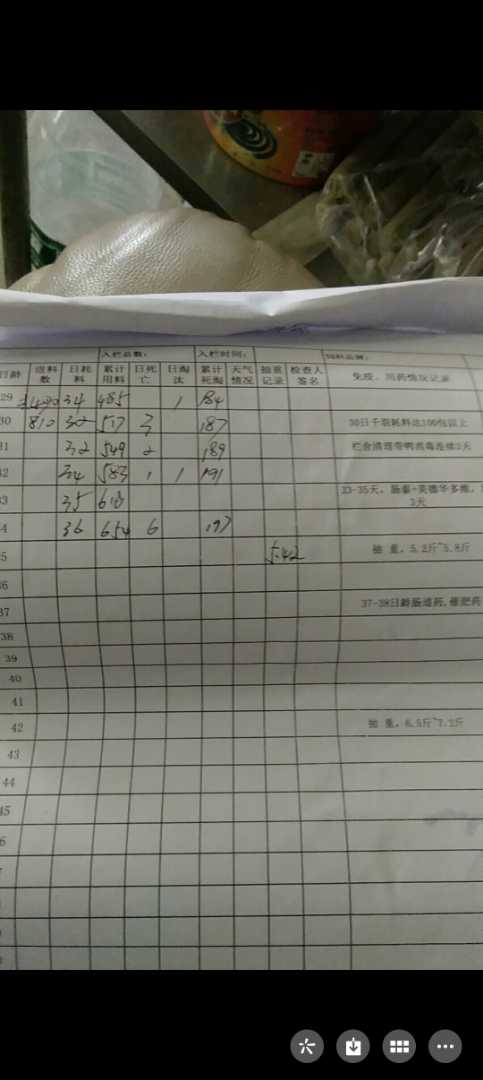 入栏总数： 入栏时间： 饲料品牌：
日龄 进料数 日耗料 累计用料 日死亡 日淘汰 累计死淘 天气情况 抽重记录 检查人签名 免疫、用药情况记录
29 34 485 1 184
30 810 32 517 3 187 30日千羽耗料达100包以上
31 32 549 2 189 栏舍清理带鸭消毒连续3天
32 34 583 1 1 191
33 35 618 33-35天，肠泰+英德华多维，
3天
34 36 654 6 197
35 5.42 抽 重，5.2斤~5.8斤
36
37 37-38日龄肠道药,催肥药
38
39
40
41
42 抽 重，6.5斤~7.2斤
43
44
45
6